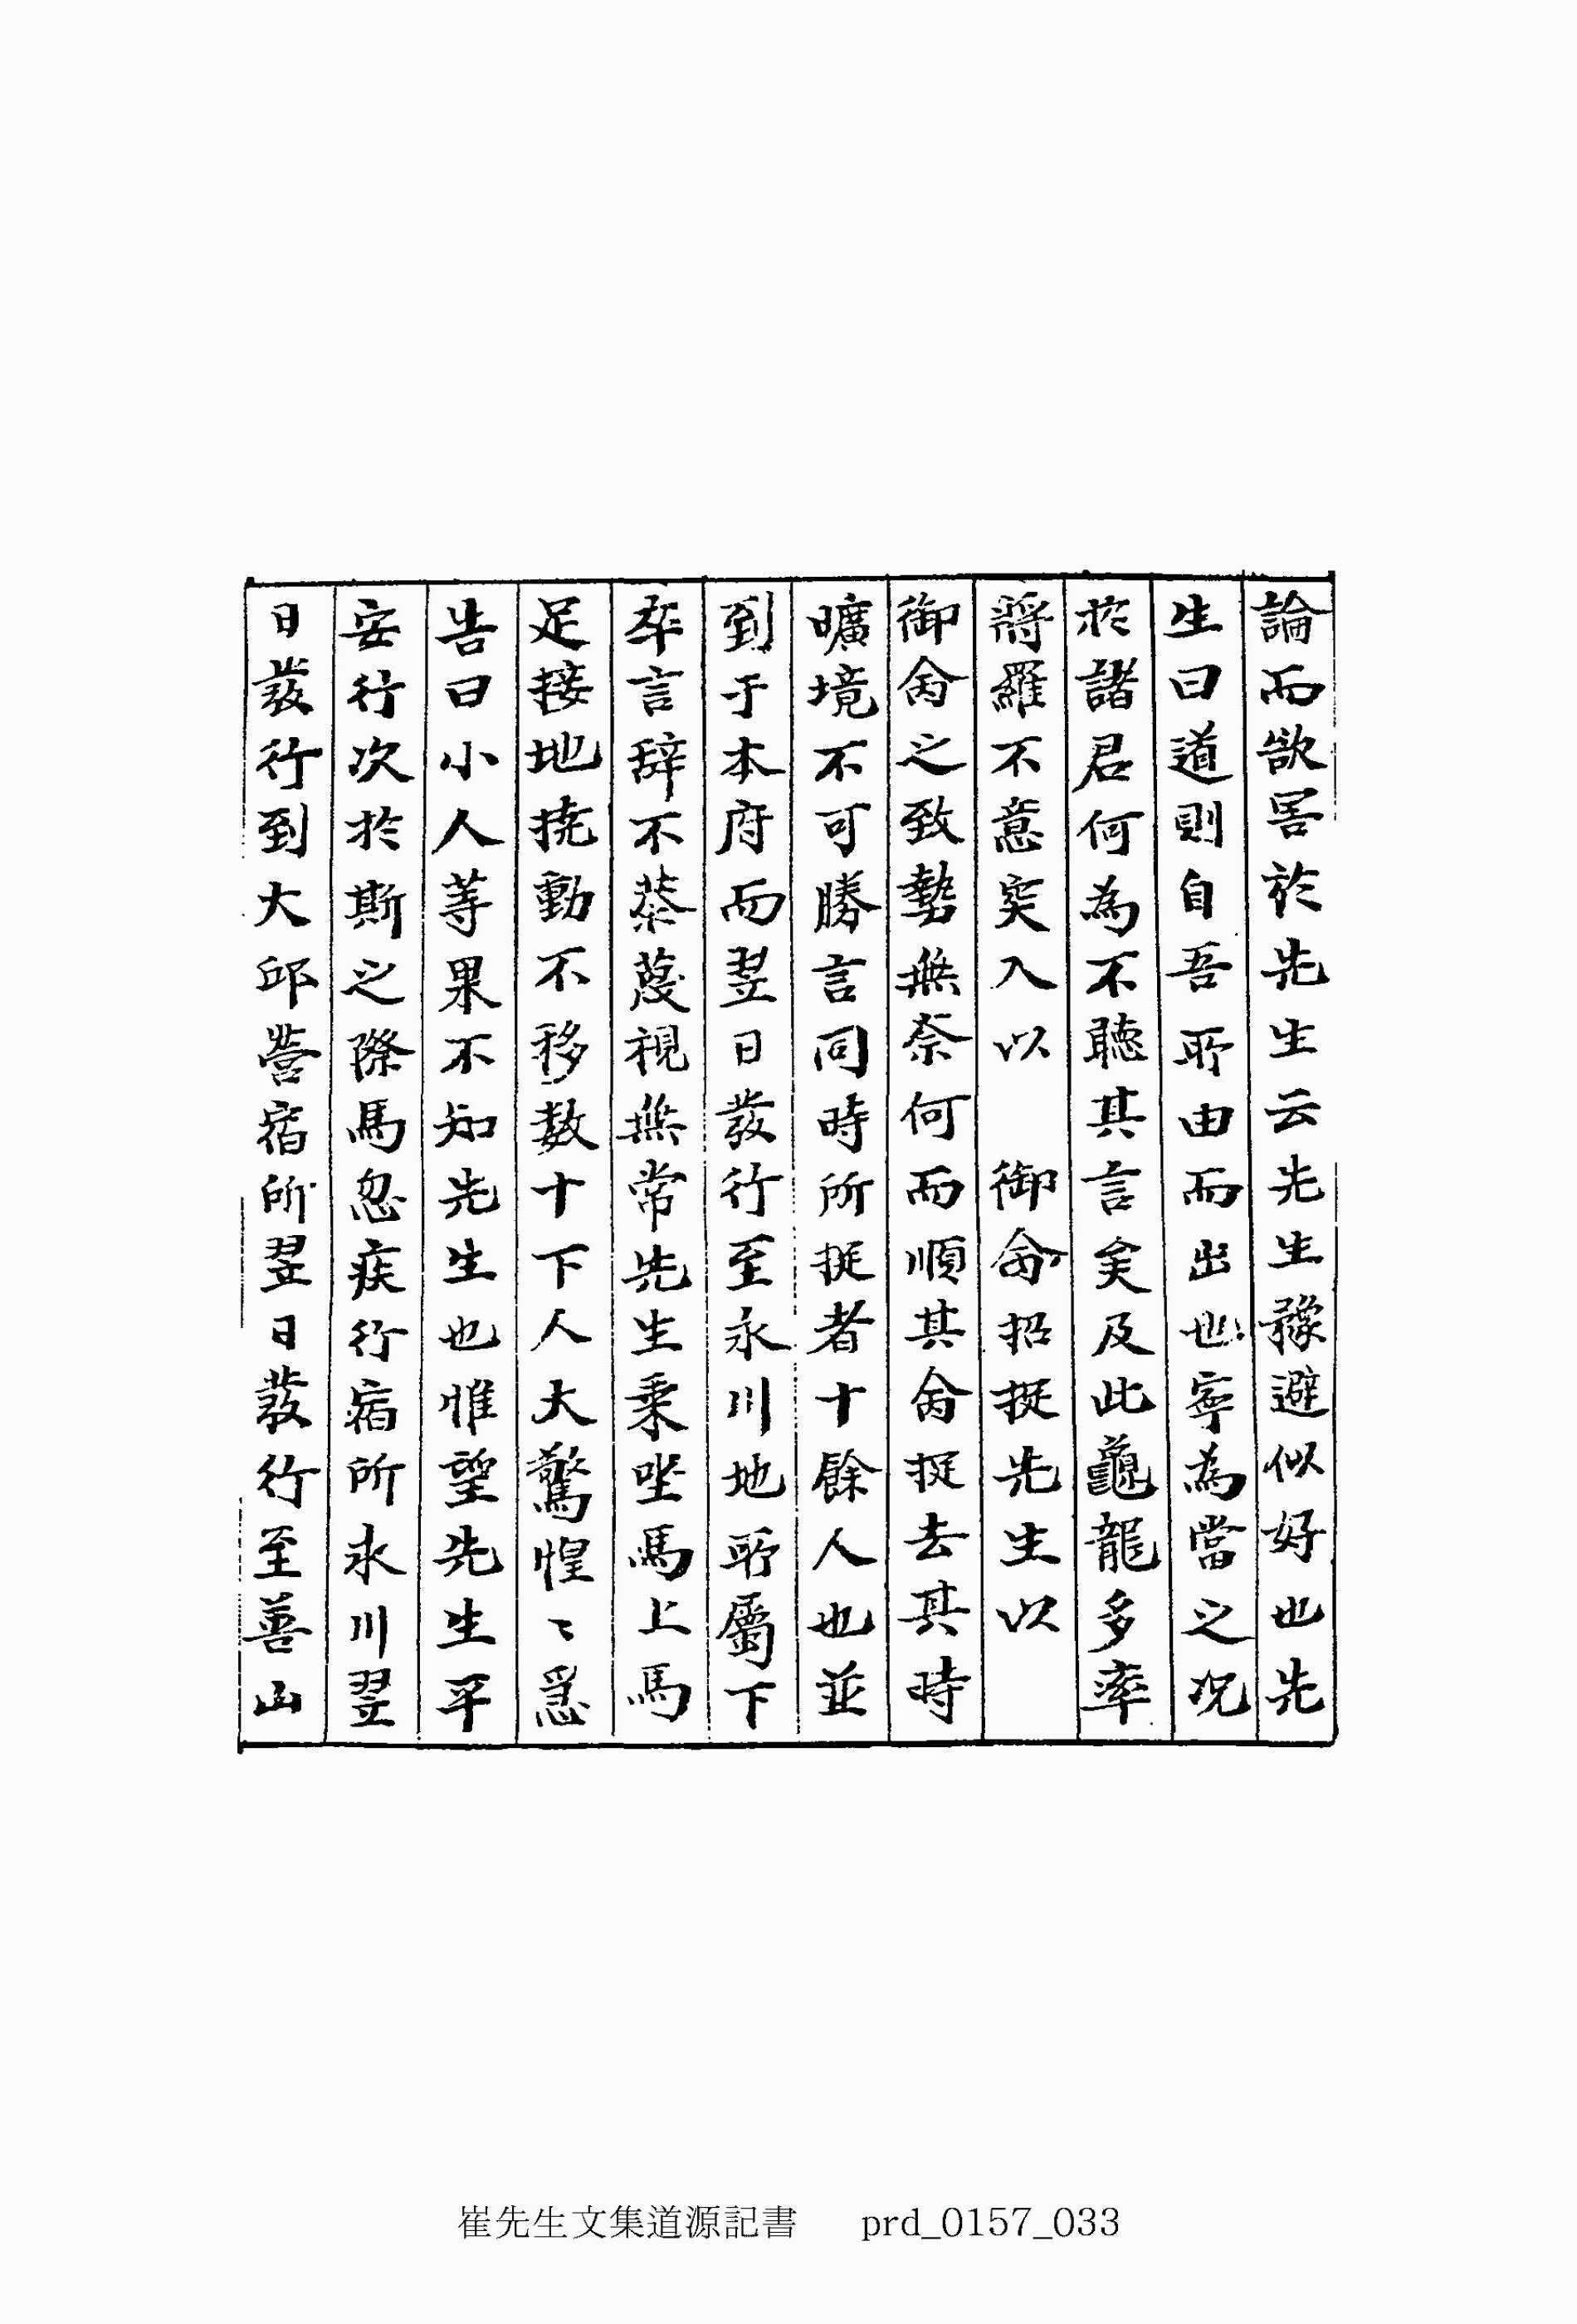 論而欲害於先生云先生豫避似好也先
生曰道則自吾所由而出也寧為當之况
於諸君何為不聽其言矣及此龜龍多率
將羅不意突入以　御命招捉先生以
御命之致勢無奈何而順其命捉去其時
曠境不可勝言同時所捉者十餘人也並
到于本府而翌日發行至永川地所屬下
卒言辞不恭蔑視無常先生乘坐馬上馬
足接地撓動不移数十下人大驚惶〻急
告曰小人等果不知先生也惟望先生平
安行次於斯之際馬忽疾行宿所永川翌
日發行到大邱營宿所翌日發行至善山
崔先生文集道源記書 prd_0157_033